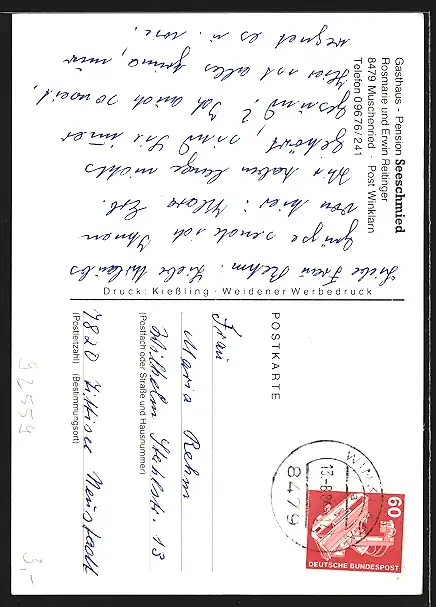 Gasthaus - Pension Seeschmied
Rosmarie und Erwin Reitinger
8479 Muschenried - Post Winklarn
Telefon 09676/241
Liebe Frau Rehm. Liebe Urlaubs
grüße sende ich Ihnen
von hier: Klara Erb.
Wir haben lange nichts
gehört, sind Sie immer
gesund? Ich auch soweit,
Hier ist alles prima, nur
regnet es
Druck: Kießling · Weidener Werbedruck
POSTKARTE
WINK
13.-8
8479
60
DEUTSCHE BUNDESPOST
Frau
Maria Rehm
Wilhelm Stahlstr. 13
(Postfach oder Straße und Hausnummer)
7820 Titisee Neustadt
(Postleitzahl) (Bestimmungsort)
92559
3,-